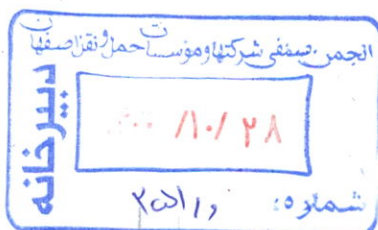 انجمن صنفی شرکتها و مؤسسات حمل و نقل اصفهان
دبیرخانه
/۱۰/ ۲۸
شماره: